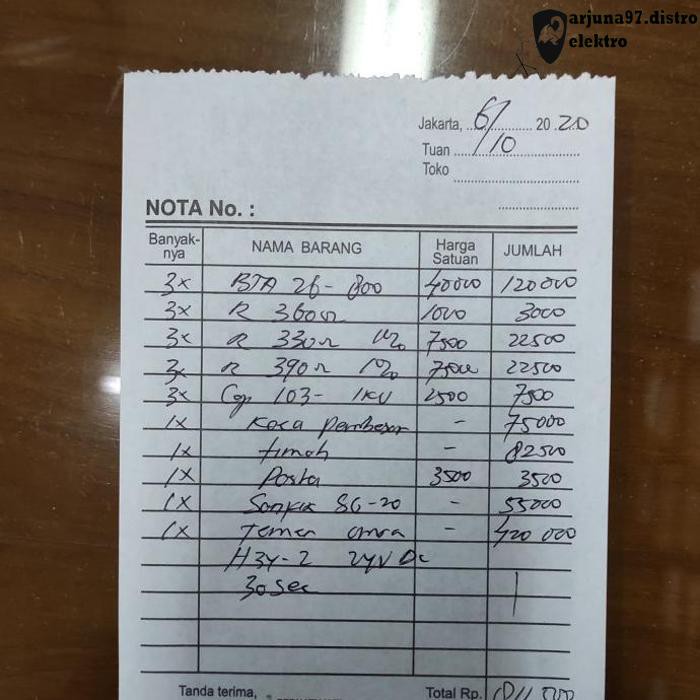 arjuna97.distro
elektro
Jakarta, 6/10 2020
Tuan
Toko
NOTA No. :
Banyak-nya NAMA BARANG Harga Satuan JUMLAH
3x BTA 26-800 40000 120000
3x R 360Ω 1000 3000
3x R 330Ω 7500 22500
3x R 390Ω 7500 22500
3x Cap 103- 1KV 2500 7500
1x Kaca pembesar - 75000
1x timah - 82500
1x Pasta 3500 3500
1x SG-20 - 55000
1x Temer - 420 000
H3Y-2 24V Dc
30 Sec
Tanda terima, Total Rp.